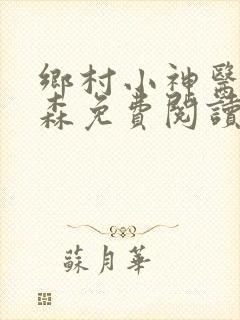 鄉村小神醫
森免費閱讀
蘇月華